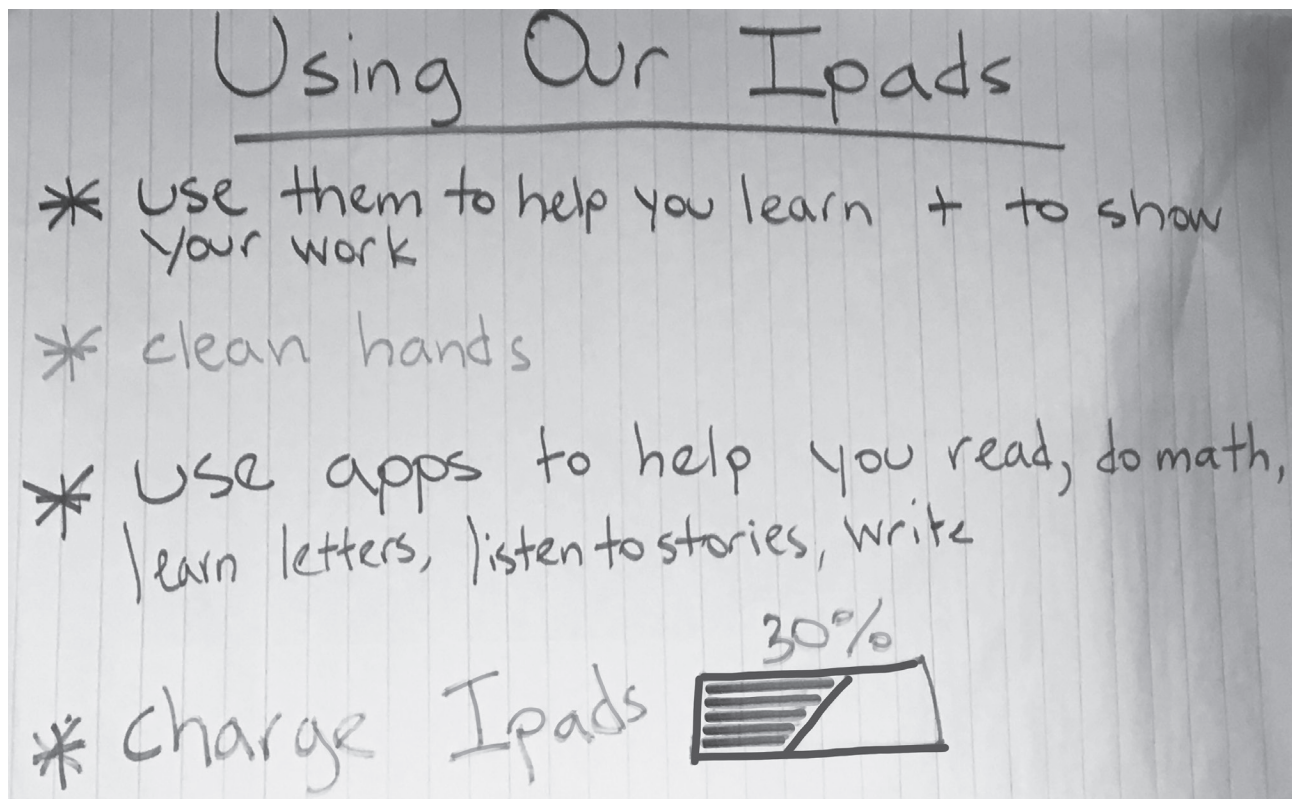 Using Our Ipads
* use them to help you learn + to show
your work
* clean hands
* use apps to help you read, do math,
learn letters, listen to stories, write
30%
* Charge Ipads